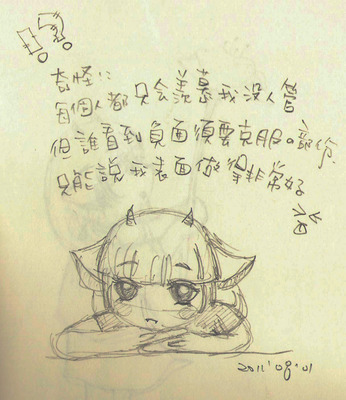 !?
奇怪!!
每個人都只会羨慕我没人管
但誰看到負面須要克服の部份
只能說我表面做得非常好
2011'08'01